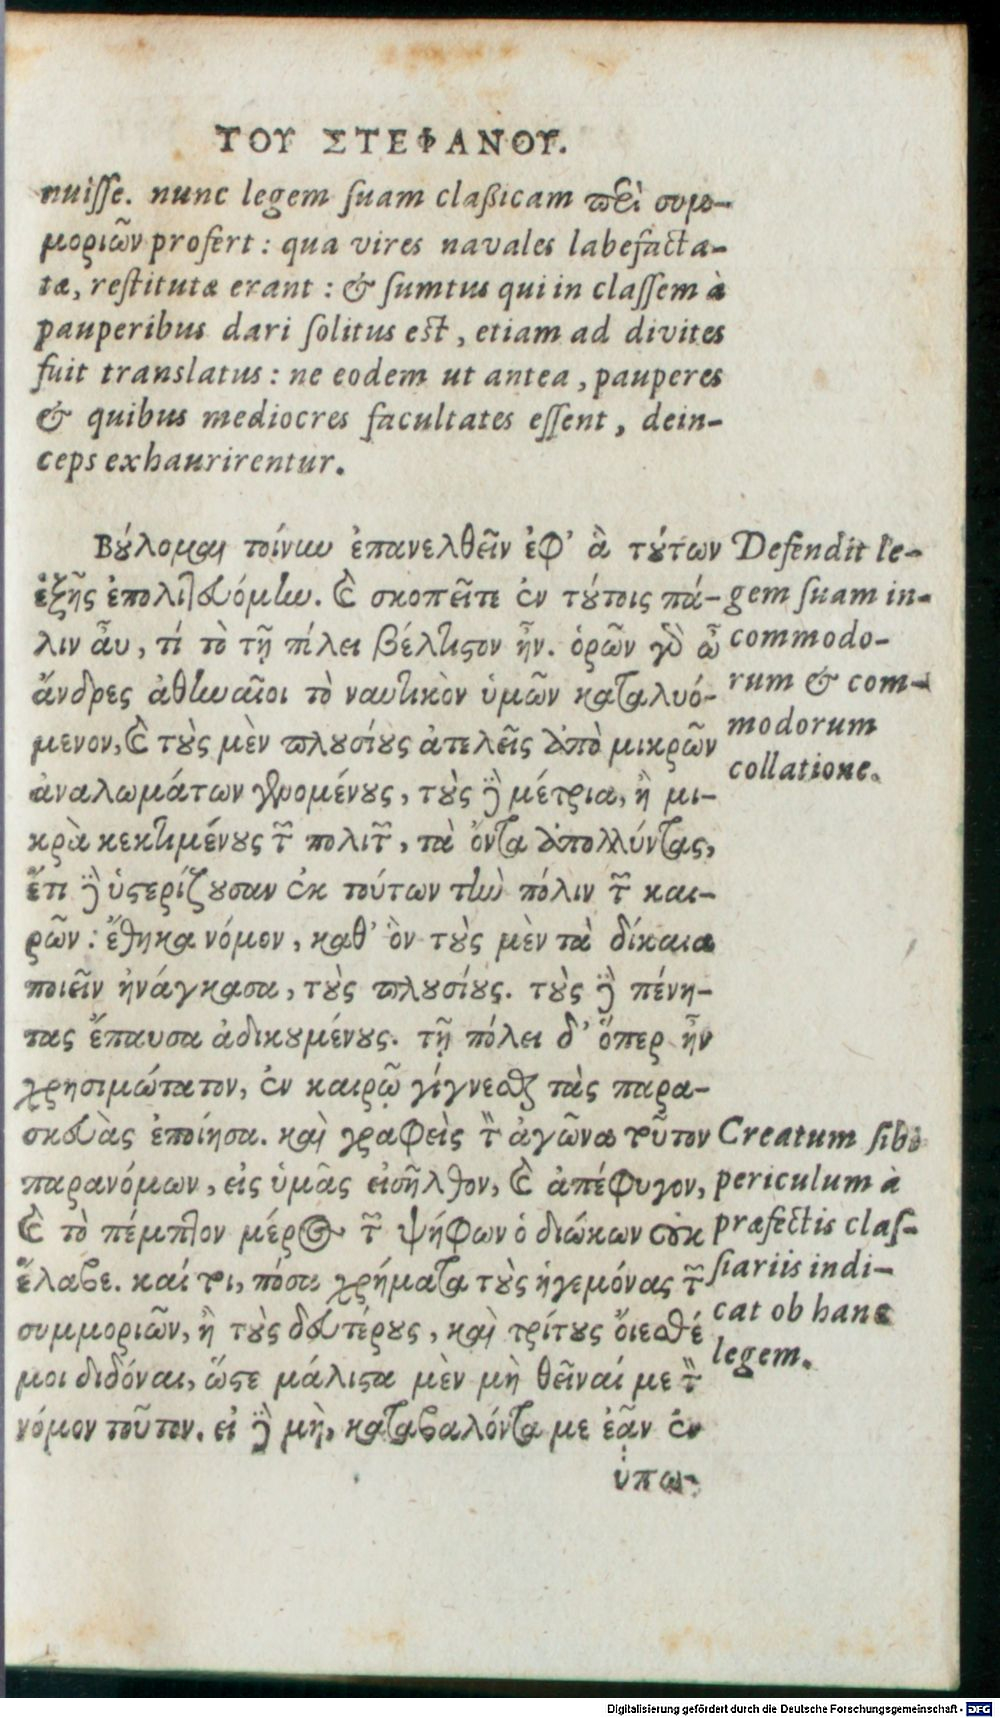 ΤΟΥ ΣΤΕΦΑΝΟΥ.
nuisse. nunc legem suam classicam περὶ συμ-
μοριῶν profert: qua vires navales labefacta-
tæ, restitutæ erant: & sumtus qui in classem à
pauperibus dari solitus est, etiam ad divites
fuit translatus: ne eodem ut antea, pauperes
& quibus mediocres facultates essent, dein-
ceps exhaurirentur.
Βούλομαι τοίνυν ἐπανελθεῖν ἐφ' ἃ τούτων
ἑξῆς ἐπολιτευόμην. καὶ σκοπεῖτε ἐν τούτοις πά-
λιν αὖ, τί τὸ τῇ πόλει βέλτιστον ἦν. ὁρῶν γὰρ ὦ
ἄνδρες ἀθηναῖοι τὸ ναυτικὸν ὑμῶν καταλυό-
μενον, καὶ τοὺς μὲν πλουσίους ἀτελεῖς ἀπὸ μικρῶν
ἀναλωμάτων γινομένους, τοὺς δὲ μέτρια, ἢ μι-
κρὰ κεκτημένους τῶν πολιτῶν, τὰ ὄντα ἀπολλύντας,
ἔτι δὲ ὑστερίζουσαν ἐκ τούτων τὴν πόλιν τῶν και-
ρῶν: ἔθηκα νόμον, καθ' ὃν τοὺς μὲν τὰ δίκαια
ποιεῖν ἠνάγκασα, τοὺς πλουσίους. τοὺς δὲ πένη-
τας ἔπαυσα ἀδικουμένους. τῇ πόλει δ' ὅπερ ἦν
χρησιμώτατον, ἐν καιρῷ γίγνεσθαι τὰς παρα-
σκευὰς ἐποίησα. καὶ γραφεὶς τὸν ἀγῶνα τοῦτον
παρανόμων, εἰς ὑμᾶς εἰσῆλθον, καὶ ἀπέφυγον,
καὶ τὸ πέμπτον μέρος τῶν ψήφων ὁ διώκων οὐκ
ἔλαβε. καίτοι, πόσα χρήματα τοὺς ἡγεμόνας τῶν
συμμοριῶν, ἢ τοὺς δευτέρους, καὶ τρίτους οἴεσθέ
μοι διδόναι, ὥστε μάλιστα μὲν μὴ θεῖναί με τὸν
νόμον τοῦτον. εἰ δὲ μὴ, καταβαλόντα με ἐᾶν ἐν
ὑπω-
Defendit le-
gem suam in-
commodo-
rum & com-
modorum
collatione.
Creatum sibi
periculum à
præfectis clas-
siariis indi-
cat ob hanc
legem.
Digitalisierung gefördert durch die Deutsche Forschungsgemeinschaft - DFG